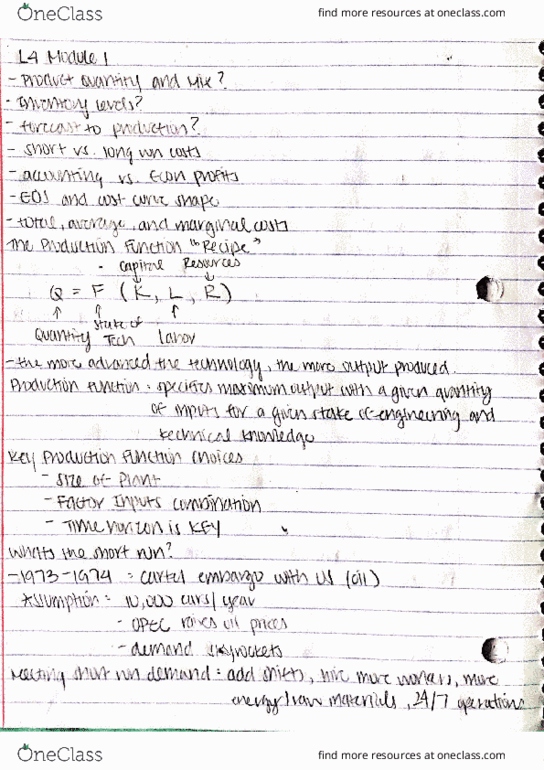 OneClass
find more resources at oneclass.com
L4 Module 1
- Product Quantity and Mix?
- Inventory levels?
- forecast to production?
- short vs. long run costs
- accounting vs. Econ profits
- EOS and cost curve shape
- total, average, and marginal costs
The Production Function "Recipe"
• capital Resources
Q = F (K, L, R)
↑ ↑ ↑
Quantity State of Tech labor
- the more advanced the technology, the more output produced.
Production function: specifies maximum output with a given quantity
of inputs for a given state of engineering and
technical knowledge
Key Production Function Choices
- Size of Plant
- Factor Inputs combination
- Time horizon is KEY
Whats the short run?
- 1973-1974 = cartel embargo with US (oil)
Assumption = 10,000 cars/year
- OPEC raises oil prices
- demand skyrockets
Meeting short run demand = add shifts, hire more workers, more
energy/raw materials, 24/7 operations
OneClass
find more resources at oneclass.com